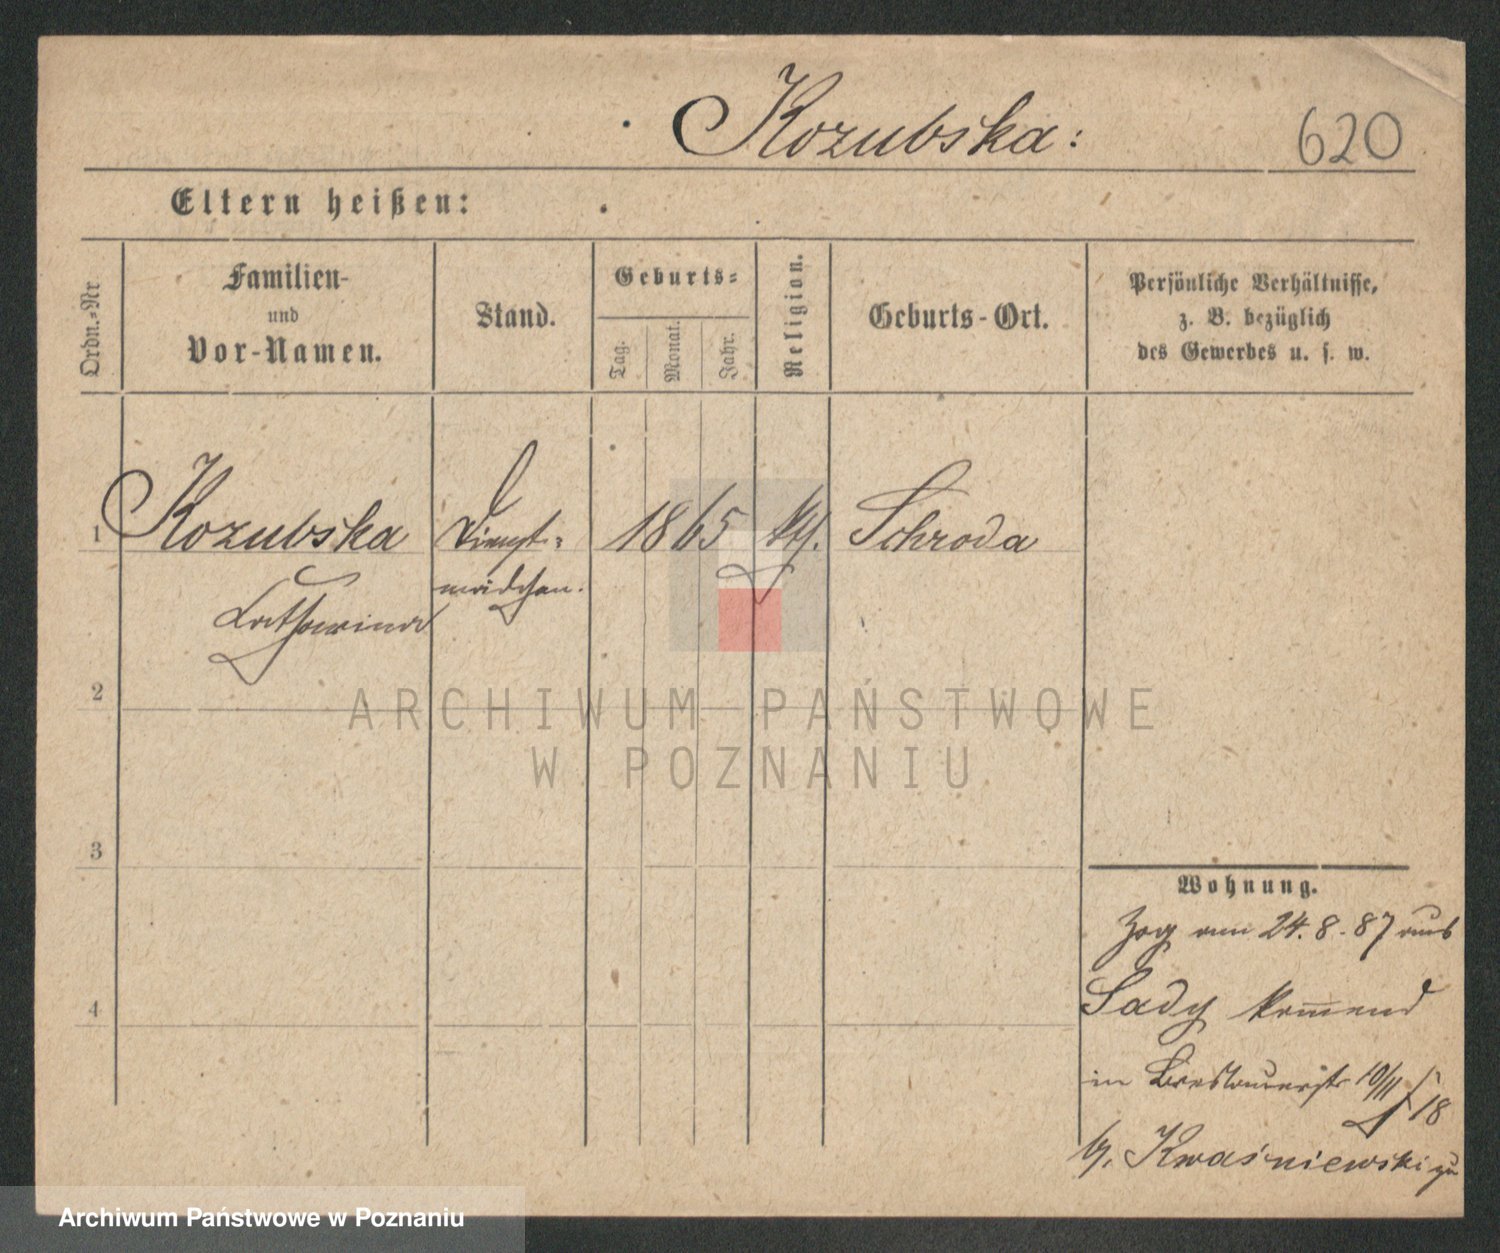 Kozubska:
620
Eltern heißen:
Ordn.-Nr
Familien-
und
Vor-Namen.
Stand.
Geburts-
Tag.
Monat.
Jahr.
Religion.
Geburts-Ort.
Persönliche Verhältnisse,
z. B. bezüglich
des Gewerbes u. s. w.
1 Kozubska Dienst- 1865 kth. Schroda
Catharina mädchen.
2
ARCHIWUM PAŃSTWOWE
W POZNANIU
3
4
Wohnung.
Zog am 24.8.87 aus
Sady kommend
in Breslauerstr 10/11 18
b. Kwaśniewski zu
Archiwum Państwowe w Poznaniu